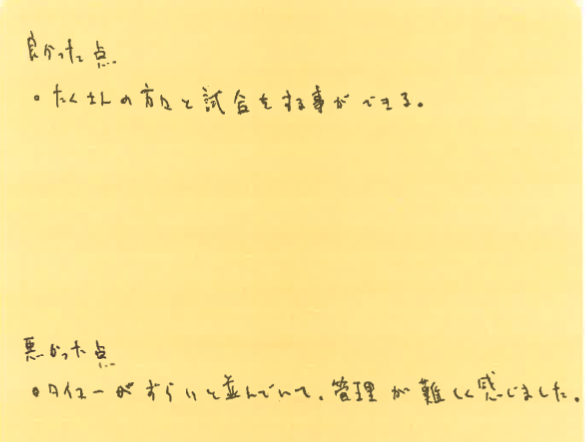 良かった点
・たくさんの方々と試合をする事ができる。
悪かった点
・タイマーがずらりと並んでいて、管理が難しく感じました。